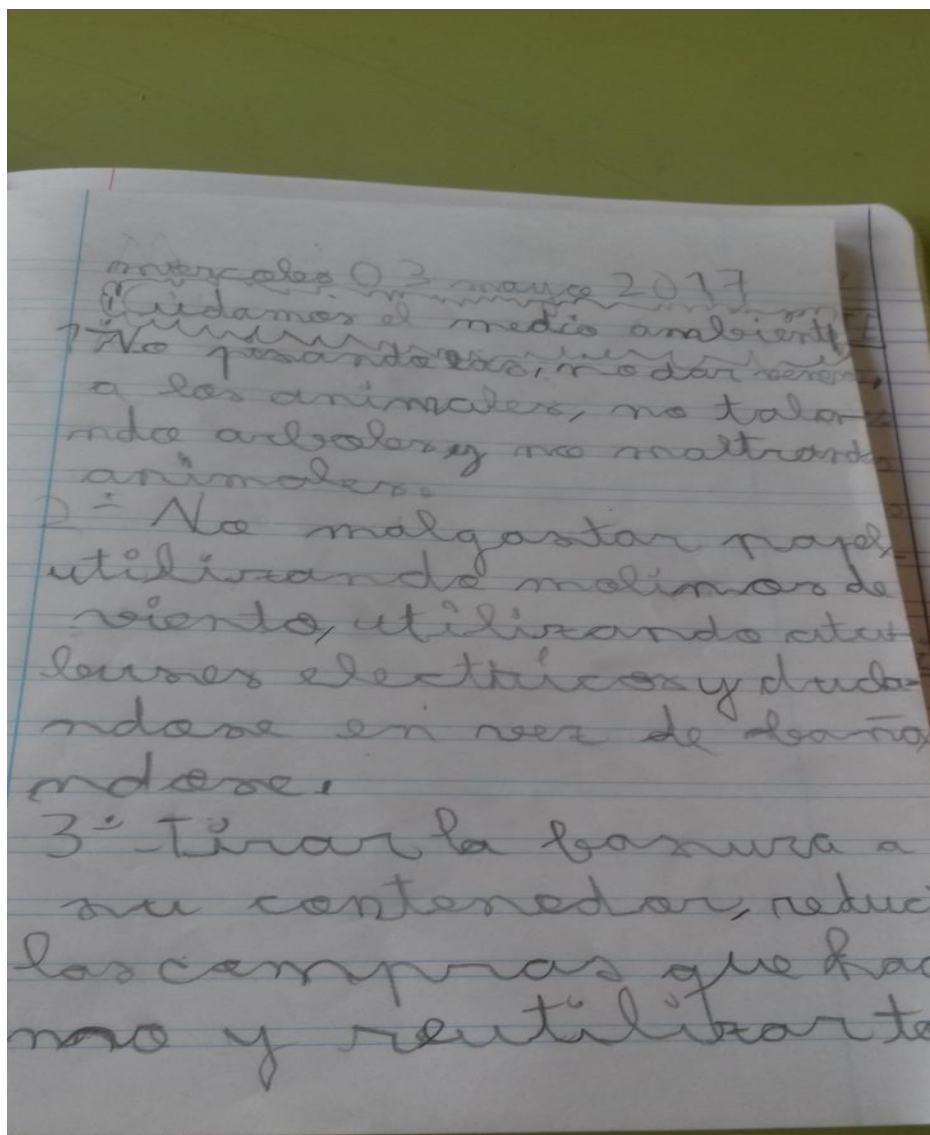 miercoles 03 mayo 2017
Cuidamos el medio ambiente
1º No pisando, no dar
a los animales, no tala
ndo arboles y no maltrando
animales.
2º No malgastar papel,
utilizando molinos de
viento, utilizando
electricos y ducha
ndose en vez de baña
ndose.
3º Tirar la basura a
su contenedor, reduc
las compras que hac
mo y reutilizar